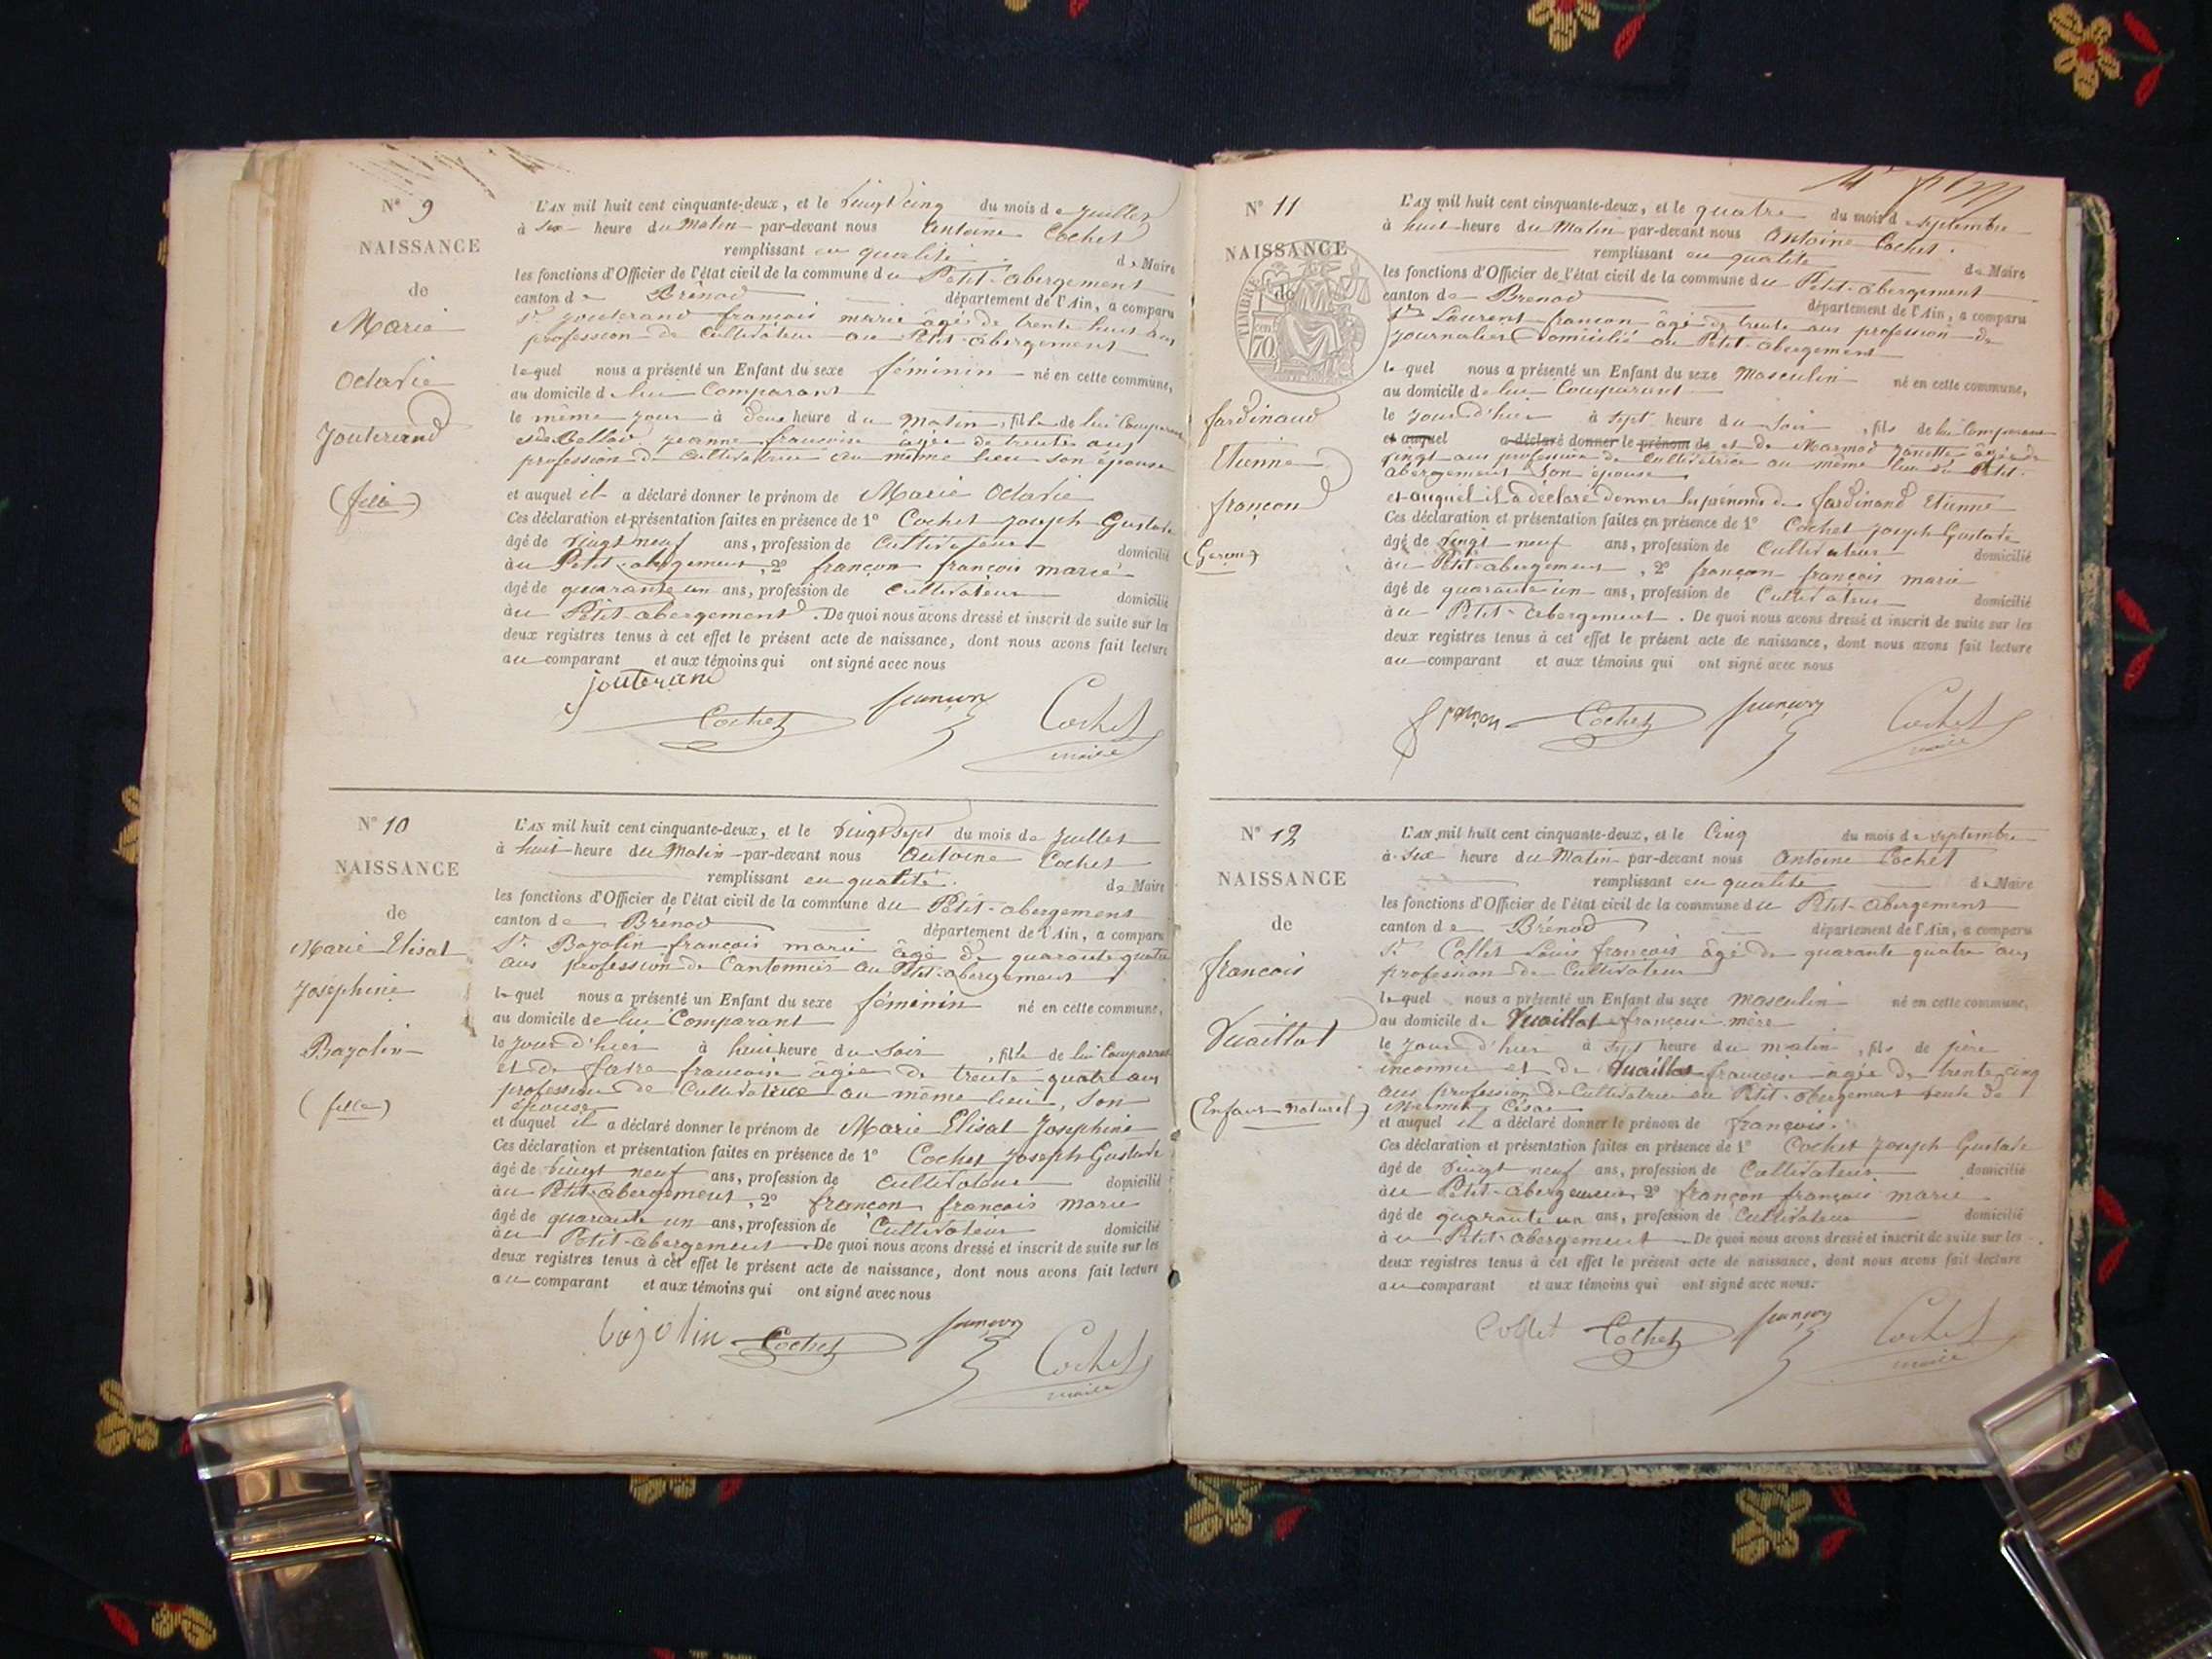 N° 9
NAISSANCE
de
Marie
Octavie
Jouterand
(fille)
L'AN mil huit cent cinquante-deux, et le vingt cinq du mois de Juillet
à six heure du Matin par-devant nous Antoine Cochet
remplissant en qualité de Maire
les fonctions d'Officier de l'état civil de la commune du Petit-abergement
canton de Brénod département de l'Ain, a comparu
Sr. Jouterand francois marie âgé de trente huit ans
profession de Cultivateur au Petit-abergement
lequel nous a présenté un Enfant du sexe féminin né en cette commune,
au domicile de lui Comparant
le même jour à deux heure du Matin, fille de lui Comparant
et de Bellod jeanne francoise âgée de trente ans
profession de Cultivatrice au même lieu son épouse
et auquel il a déclaré donner le prénom de Marie Octavie
Ces déclaration et présentation faites en présence de 1° Cochet Joseph Gustave
âgé de vingt neuf ans, profession de Cultivateur domicilié
au Petit-abergement, 2° françon françois marie
âgé de quarante un ans, profession de Cultivateur domicilié
au Petit-abergement. De quoi nous avons dressé et inscrit de suite sur les
deux registres tenus à cet effet le présent acte de naissance, dont nous avons fait lecture
au comparant et aux témoins qui ont signé avec nous
jouterand
Cochet françon Cochet
maire
N° 10
NAISSANCE
de
Marie Elisat
Joséphine
Bazolin
(fille)
L'AN mil huit cent cinquante-deux, et le vingt sept du mois de Juillet
à huit heure du Matin par-devant nous Antoine Cochet
remplissant en qualité de Maire
les fonctions d'Officier de l'état civil de la commune du Petit-abergement
canton de Brénod département de l'Ain, a comparu
Sr. Bazolin francois marie âgé de quarante quatre
ans profession de Cantonnier au Petit-abergement
lequel nous a présenté un Enfant du sexe féminin né en cette commune,
au domicile de lui Comparant
le jour d'hier à huit heure du Soir, fille de lui Comparant
et de favre francoise âgée de trente quatre ans
profession de Cultivatrice au même lieu, Son
épouse
et auquel il a déclaré donner le prénom de Marie Elisat Joséphine
Ces déclaration et présentation faites en présence de 1° Cochet Joseph Gustave
âgé de vingt neuf ans, profession de Cultivateur domicilié
au Petit-abergement, 2° françon francois marie
âgé de quarante un ans, profession de Cultivateur domicilié
au Petit-abergement. De quoi nous avons dressé et inscrit de suite sur les
deux registres tenus à cet effet le présent acte de naissance, dont nous avons fait lecture
au comparant et aux témoins qui ont signé avec nous
bajolin Cochet françon Cochet
maire
N° 11
NAISSANCE
de
TIMBRE
70 cen
fardinand
Etienne
françon
(Garçon)
L'AN mil huit cent cinquante-deux, et le quatre du mois de Septembre
à huit heure du Matin par-devant nous Antoine Cochet.
remplissant en qualité de Maire
les fonctions d'Officier de l'état civil de la commune du Petit-abergement
canton de Brenod département de l'Ain, a comparu
Sr. Laurent françon âgé de trente ans profession de
Journalier Domicilié au Petit-abergement
lequel nous a présenté un Enfant du sexe Masculin né en cette commune,
au domicile de lui Comparant
le jour d'hier à sept heure du Soir, fils de lui Comparant
et auquel a déclaré donner le prénom de et de Marmod Janette âgée de
vingt ans profession de Cultivatrice au même lieu du Petit-
abergement Son épouse
et auquel il a déclaré donner les prénoms de fardinand Etienne
Ces déclaration et présentation faites en présence de 1° Cochet Joseph Gustave
âgé de vingt neuf ans, profession de Cultivateur domicilié
au Petit-abergement, 2° françon françois marie
âgé de quarante un ans, profession de Cultivateur domicilié
au Petit-abergement. De quoi nous avons dressé et inscrit de suite sur les
deux registres tenus à cet effet le présent acte de naissance, dont nous avons fait lecture
au comparant et aux témoins qui ont signé avec nous
françon Cochet françon Cochet
maire
N° 12
NAISSANCE
de
francois
Vuaillat
(Enfant naturel)
L'AN mil huit cent cinquante-deux, et le Cinq du mois de Septembre
à Six heure du Matin par-devant nous Antoine Cochet
remplissant en qualité de Maire
les fonctions d'Officier de l'état civil de la commune du Petit-Abergement
canton de Brénod département de l'Ain, a comparu
Sr. Collet Louis françois âgé de quarante quatre ans
profession de Cultivateur
lequel nous a présenté un Enfant du sexe Masculin né en cette commune,
au domicile de Vuaillat françoise mère
le jour d'hier à sept heure du matin, fils de père
inconnu et de Vuaillat francoise âgée de trente cinq
ans profession de Cultivatrice au Petit-abergement veuve de
Mermet César
et auquel il a déclaré donner le prénom de françois.
Ces déclaration et présentation faites en présence de 1° Cochet Joseph Gustave
âgé de vingt neuf ans, profession de Cultivateur domicilié
au Petit-abergement, 2° françon françois marie
âgé de quarante un ans, profession de Cultivateur domicilié
au Petit-abergement. De quoi nous avons dressé et inscrit de suite sur les
deux registres tenus à cet effet le présent acte de naissance, dont nous avons fait lecture
au comparant et aux témoins qui ont signé avec nous.
Collet Cochet françon Cochet
maire